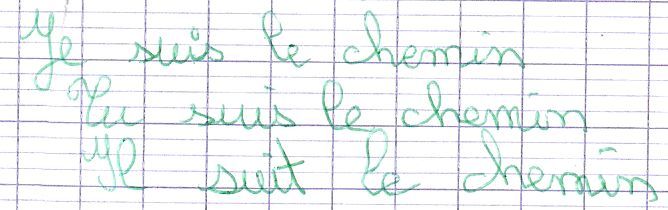 Je suis le chemin
Tu suis le chemin
Il suit le chemin